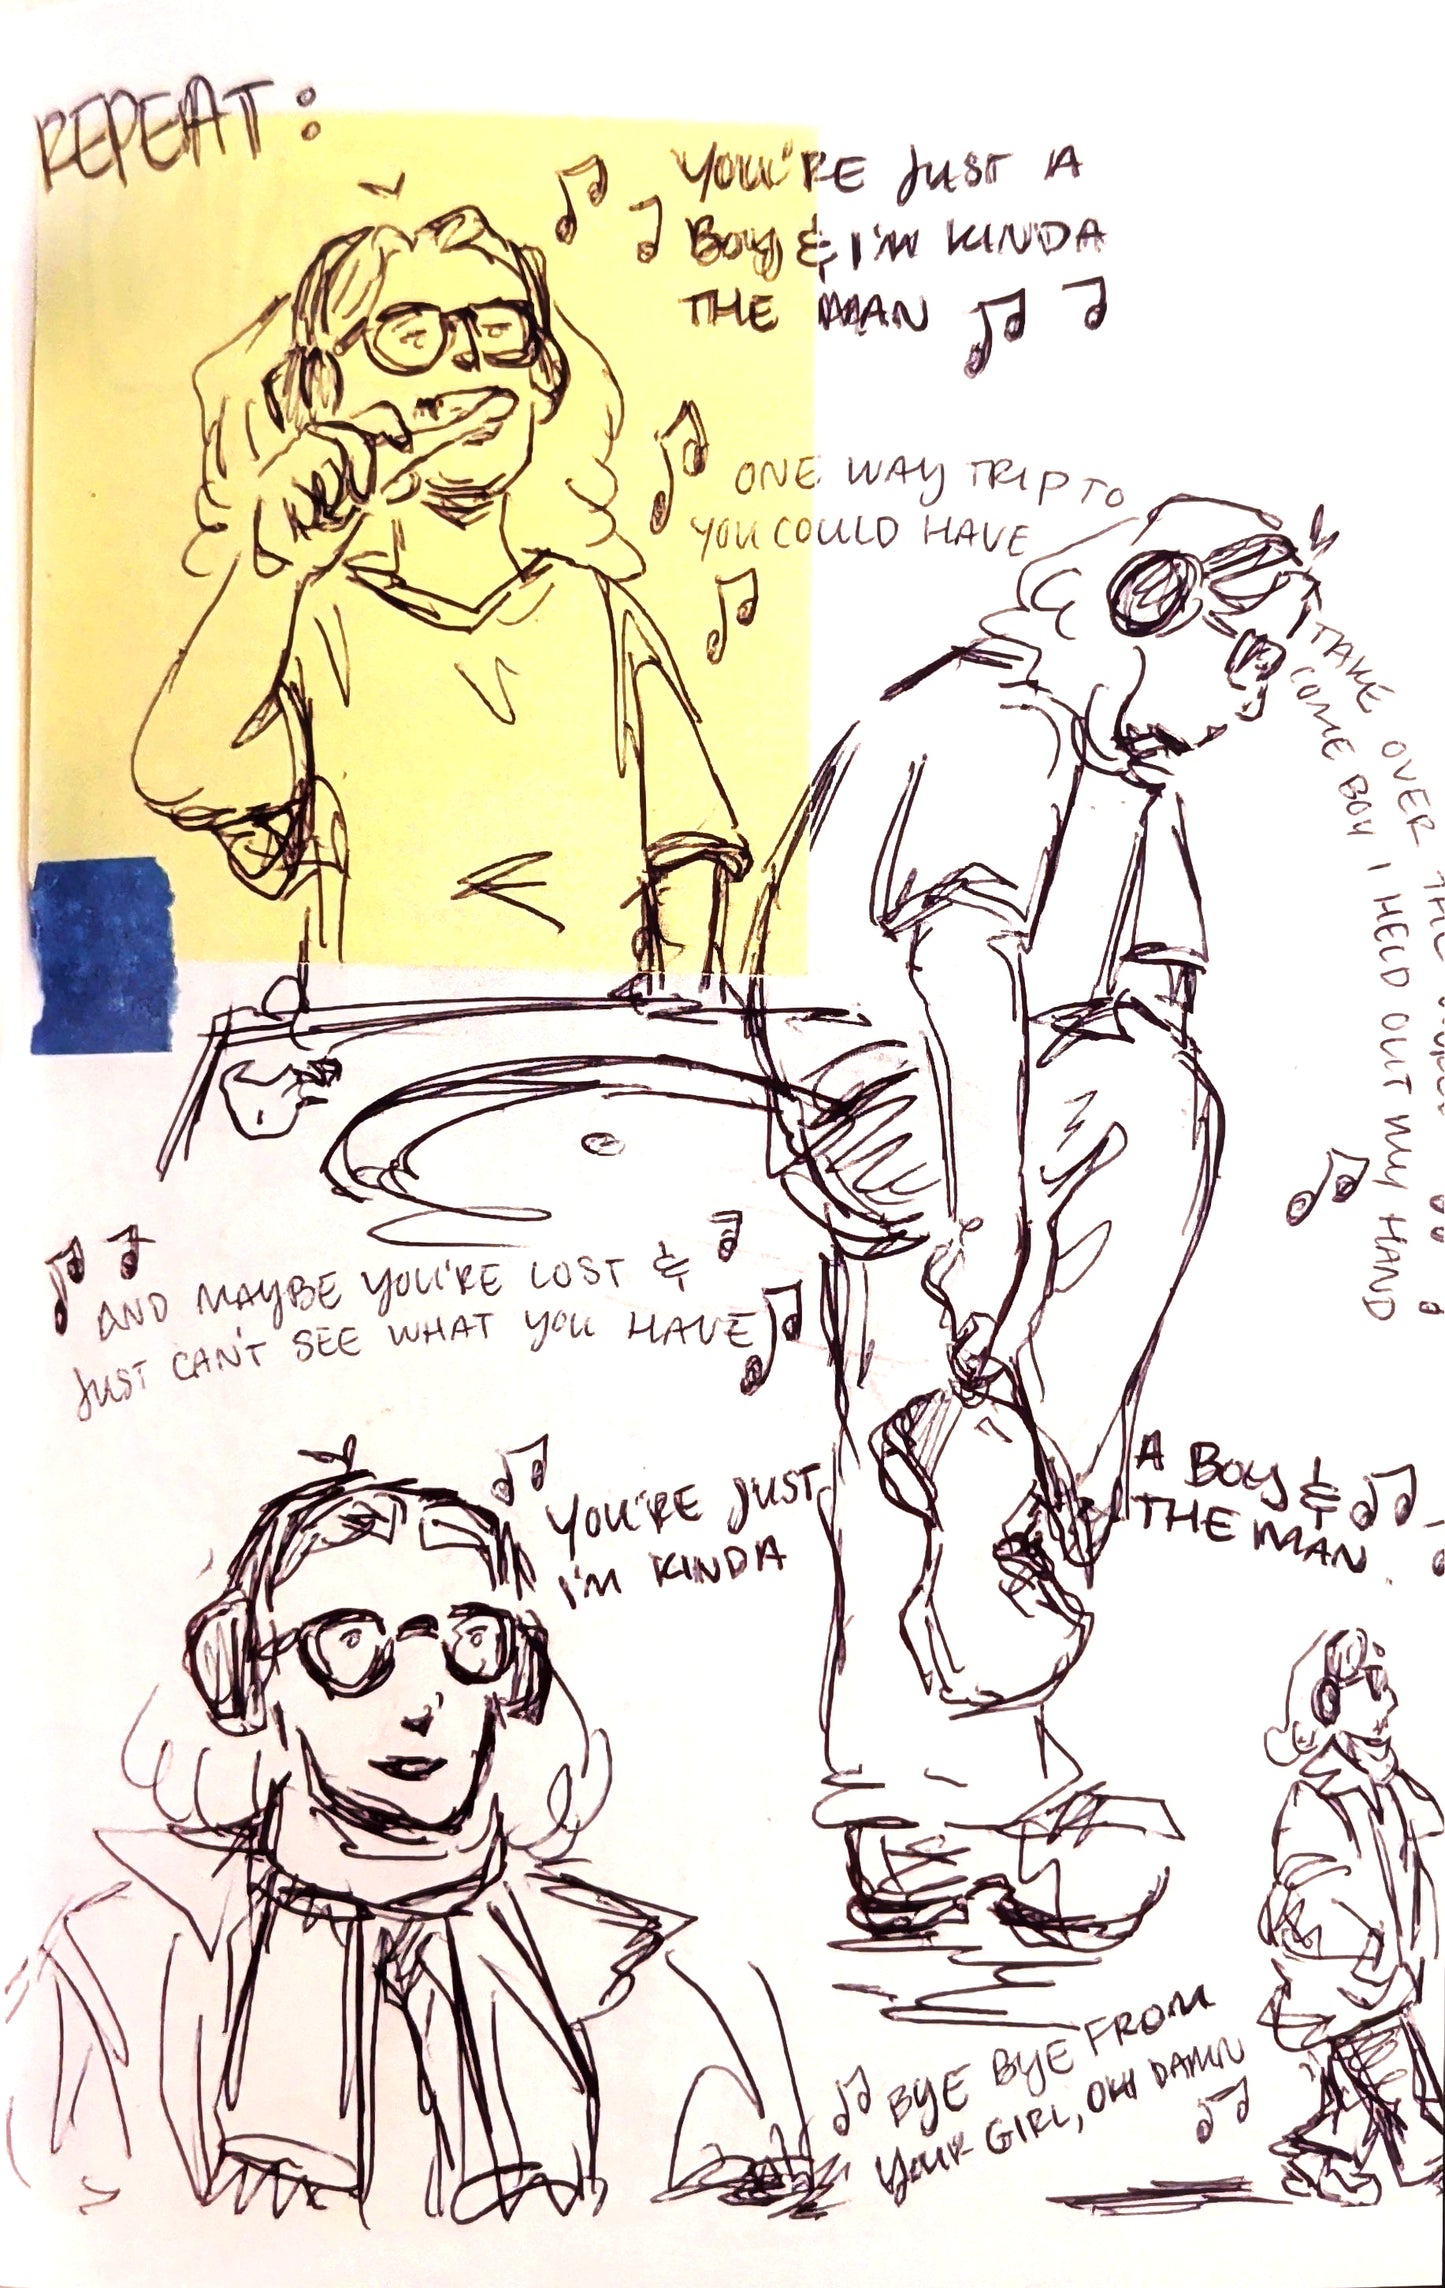 REPEAT:
YOU'RE JUST A
BOY & I'M KINDA
THE MAN
ONE WAY TRIP TO
YOU COULD HAVE
TAKE OVER THE
COME BOY I HELD OUT MY HAND
AND MAYBE YOU'RE LOST &
JUST CAN'T SEE WHAT YOU HAVE
YOU'RE JUST A BOY &
I'M KINDA THE MAN
BYE BYE FROM
YOUR GIRL, OH DAMN